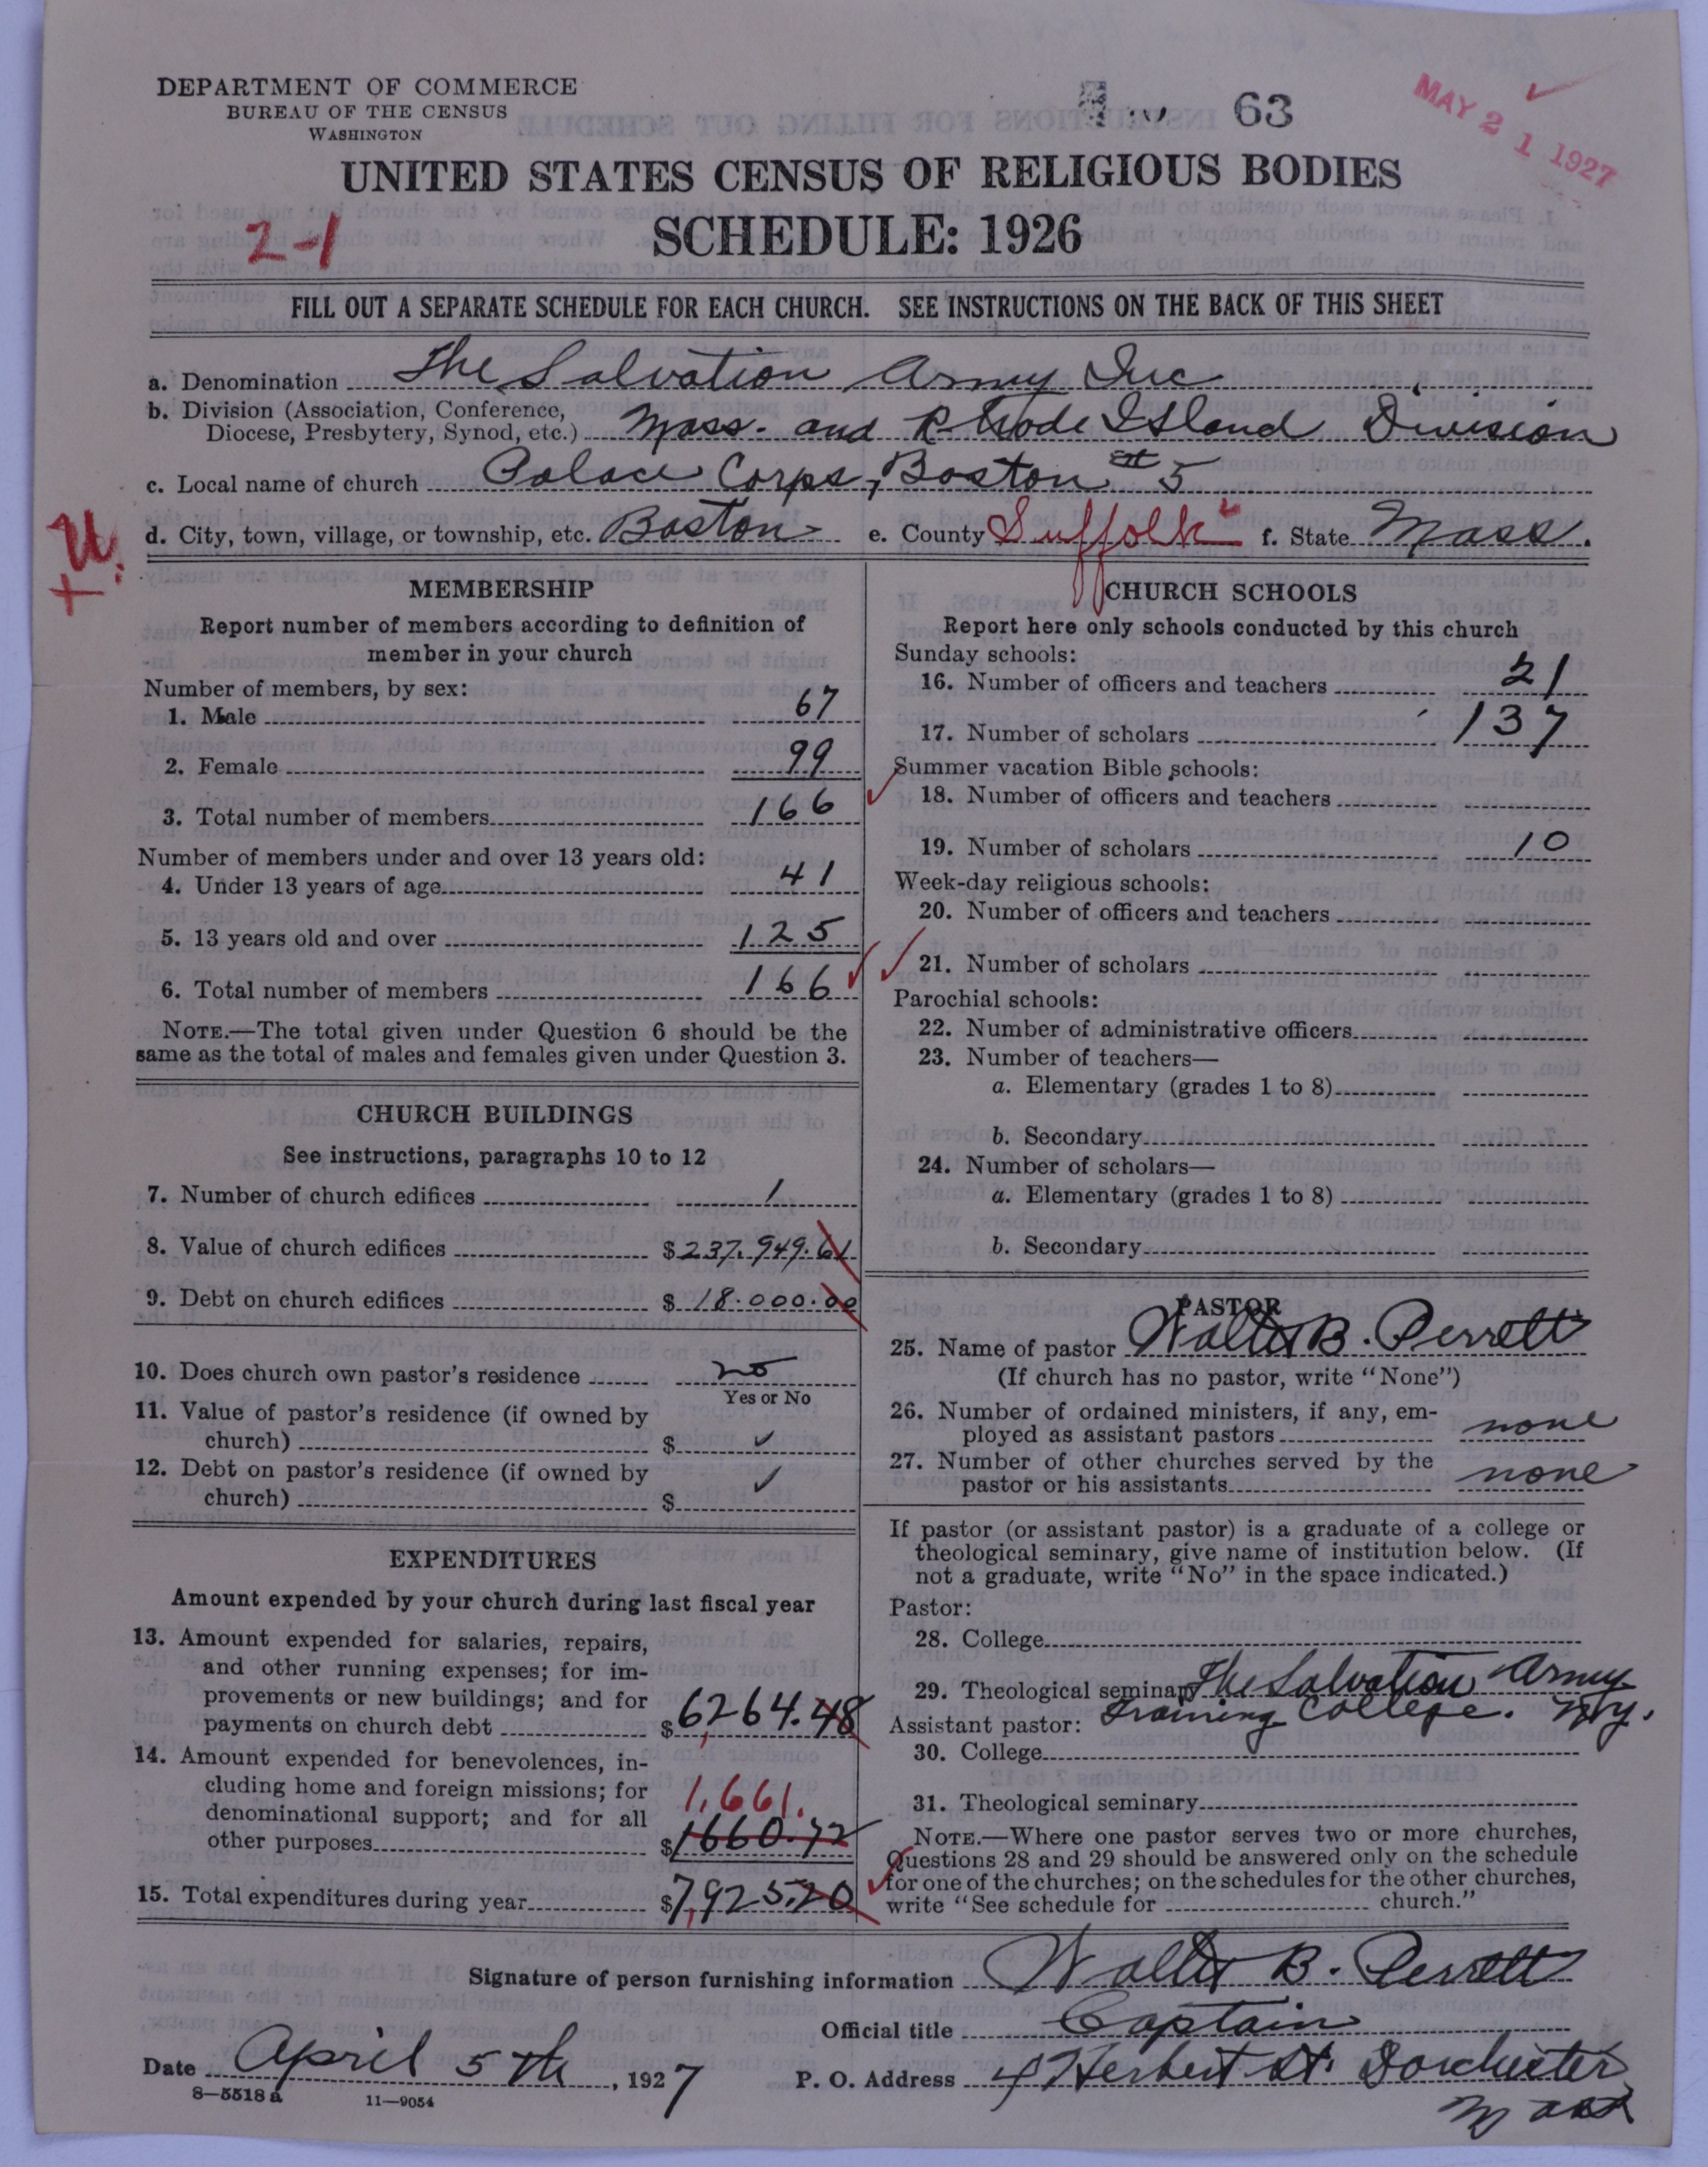 DEPARTMENT OF COMMERCE
BUREAU OF THE CENSUS
WASHINGTON
63
MAY 21 1927
UNITED STATES CENSUS OF RELIGIOUS BODIES
SCHEDULE: 1926
2-1
FILL OUT A SEPARATE SCHEDULE FOR EACH CHURCH. SEE INSTRUCTIONS ON THE BACK OF THIS SHEET
a. Denomination The Salvation Army Inc
b. Division (Association, Conference,
Diocese, Presbytery, Synod, etc.) Mass. and Rhode Island Division
c. Local name of church Palace Corps, Boston # 5
d. City, town, village, or township, etc. Boston e. County Suffolk f. State Mass.
U.
+
MEMBERSHIP
Report number of members according to definition of
member in your church
Number of members, by sex:
1. Male 67
2. Female 99
3. Total number of members 166
Number of members under and over 13 years old:
4. Under 13 years of age 41
5. 13 years old and over 125
6. Total number of members 166
NOTE.—The total given under Question 6 should be the
same as the total of males and females given under Question 3.
CHURCH BUILDINGS
See instructions, paragraphs 10 to 12
7. Number of church edifices 1
8. Value of church edifices $237.949.61
9. Debt on church edifices $18.000.00
10. Does church own pastor's residence no
Yes or No
11. Value of pastor's residence (if owned by
church) $ ✓
12. Debt on pastor's residence (if owned by
church) $ ✓
EXPENDITURES
Amount expended by your church during last fiscal year
13. Amount expended for salaries, repairs,
and other running expenses; for im-
provements or new buildings; and for
payments on church debt $6,264.48
14. Amount expended for benevolences, in-
cluding home and foreign missions; for
1,661.
denominational support; and for all
other purposes $1660.72
15. Total expenditures during year $7,925.20
CHURCH SCHOOLS
Report here only schools conducted by this church
Sunday schools:
16. Number of officers and teachers 21
17. Number of scholars 137
Summer vacation Bible schools:
18. Number of officers and teachers
19. Number of scholars 10
Week-day religious schools:
20. Number of officers and teachers
21. Number of scholars
Parochial schools:
22. Number of administrative officers
23. Number of teachers—
a. Elementary (grades 1 to 8)
b. Secondary
24. Number of scholars—
a. Elementary (grades 1 to 8)
b. Secondary
PASTOR
25. Name of pastor Walter B. Perrett
(If church has no pastor, write "None")
26. Number of ordained ministers, if any, em-
ployed as assistant pastors none
27. Number of other churches served by the
pastor or his assistants none
If pastor (or assistant pastor) is a graduate of a college or
theological seminary, give name of institution below. (If
not a graduate, write "No" in the space indicated.)
Pastor:
28. College
29. Theological seminary The Salvation Army
Assistant pastor: Training College. N.Y.
30. College
31. Theological seminary
NOTE.—Where one pastor serves two or more churches,
Questions 28 and 29 should be answered only on the schedule
for one of the churches; on the schedules for the other churches,
write "See schedule for church."
Signature of person furnishing information Walter B. Perrett
Official title Captain
Date April 5th, 1927 P. O. Address 4 Herbert St. Dorchester
Mass
8—5518 a 11—9054